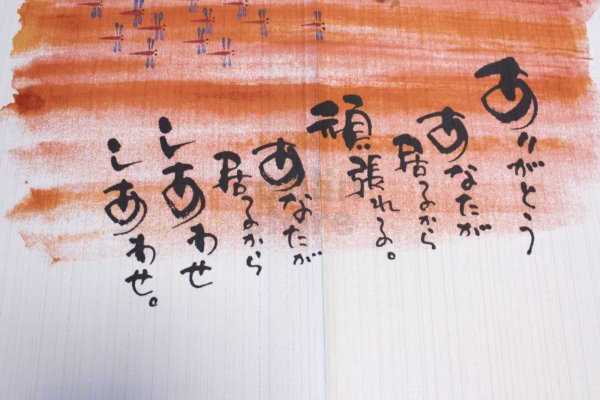 ありがとう
あなたが
居るから
頑張れる。
あなたが
居るから
しあわせ
しあわせ。